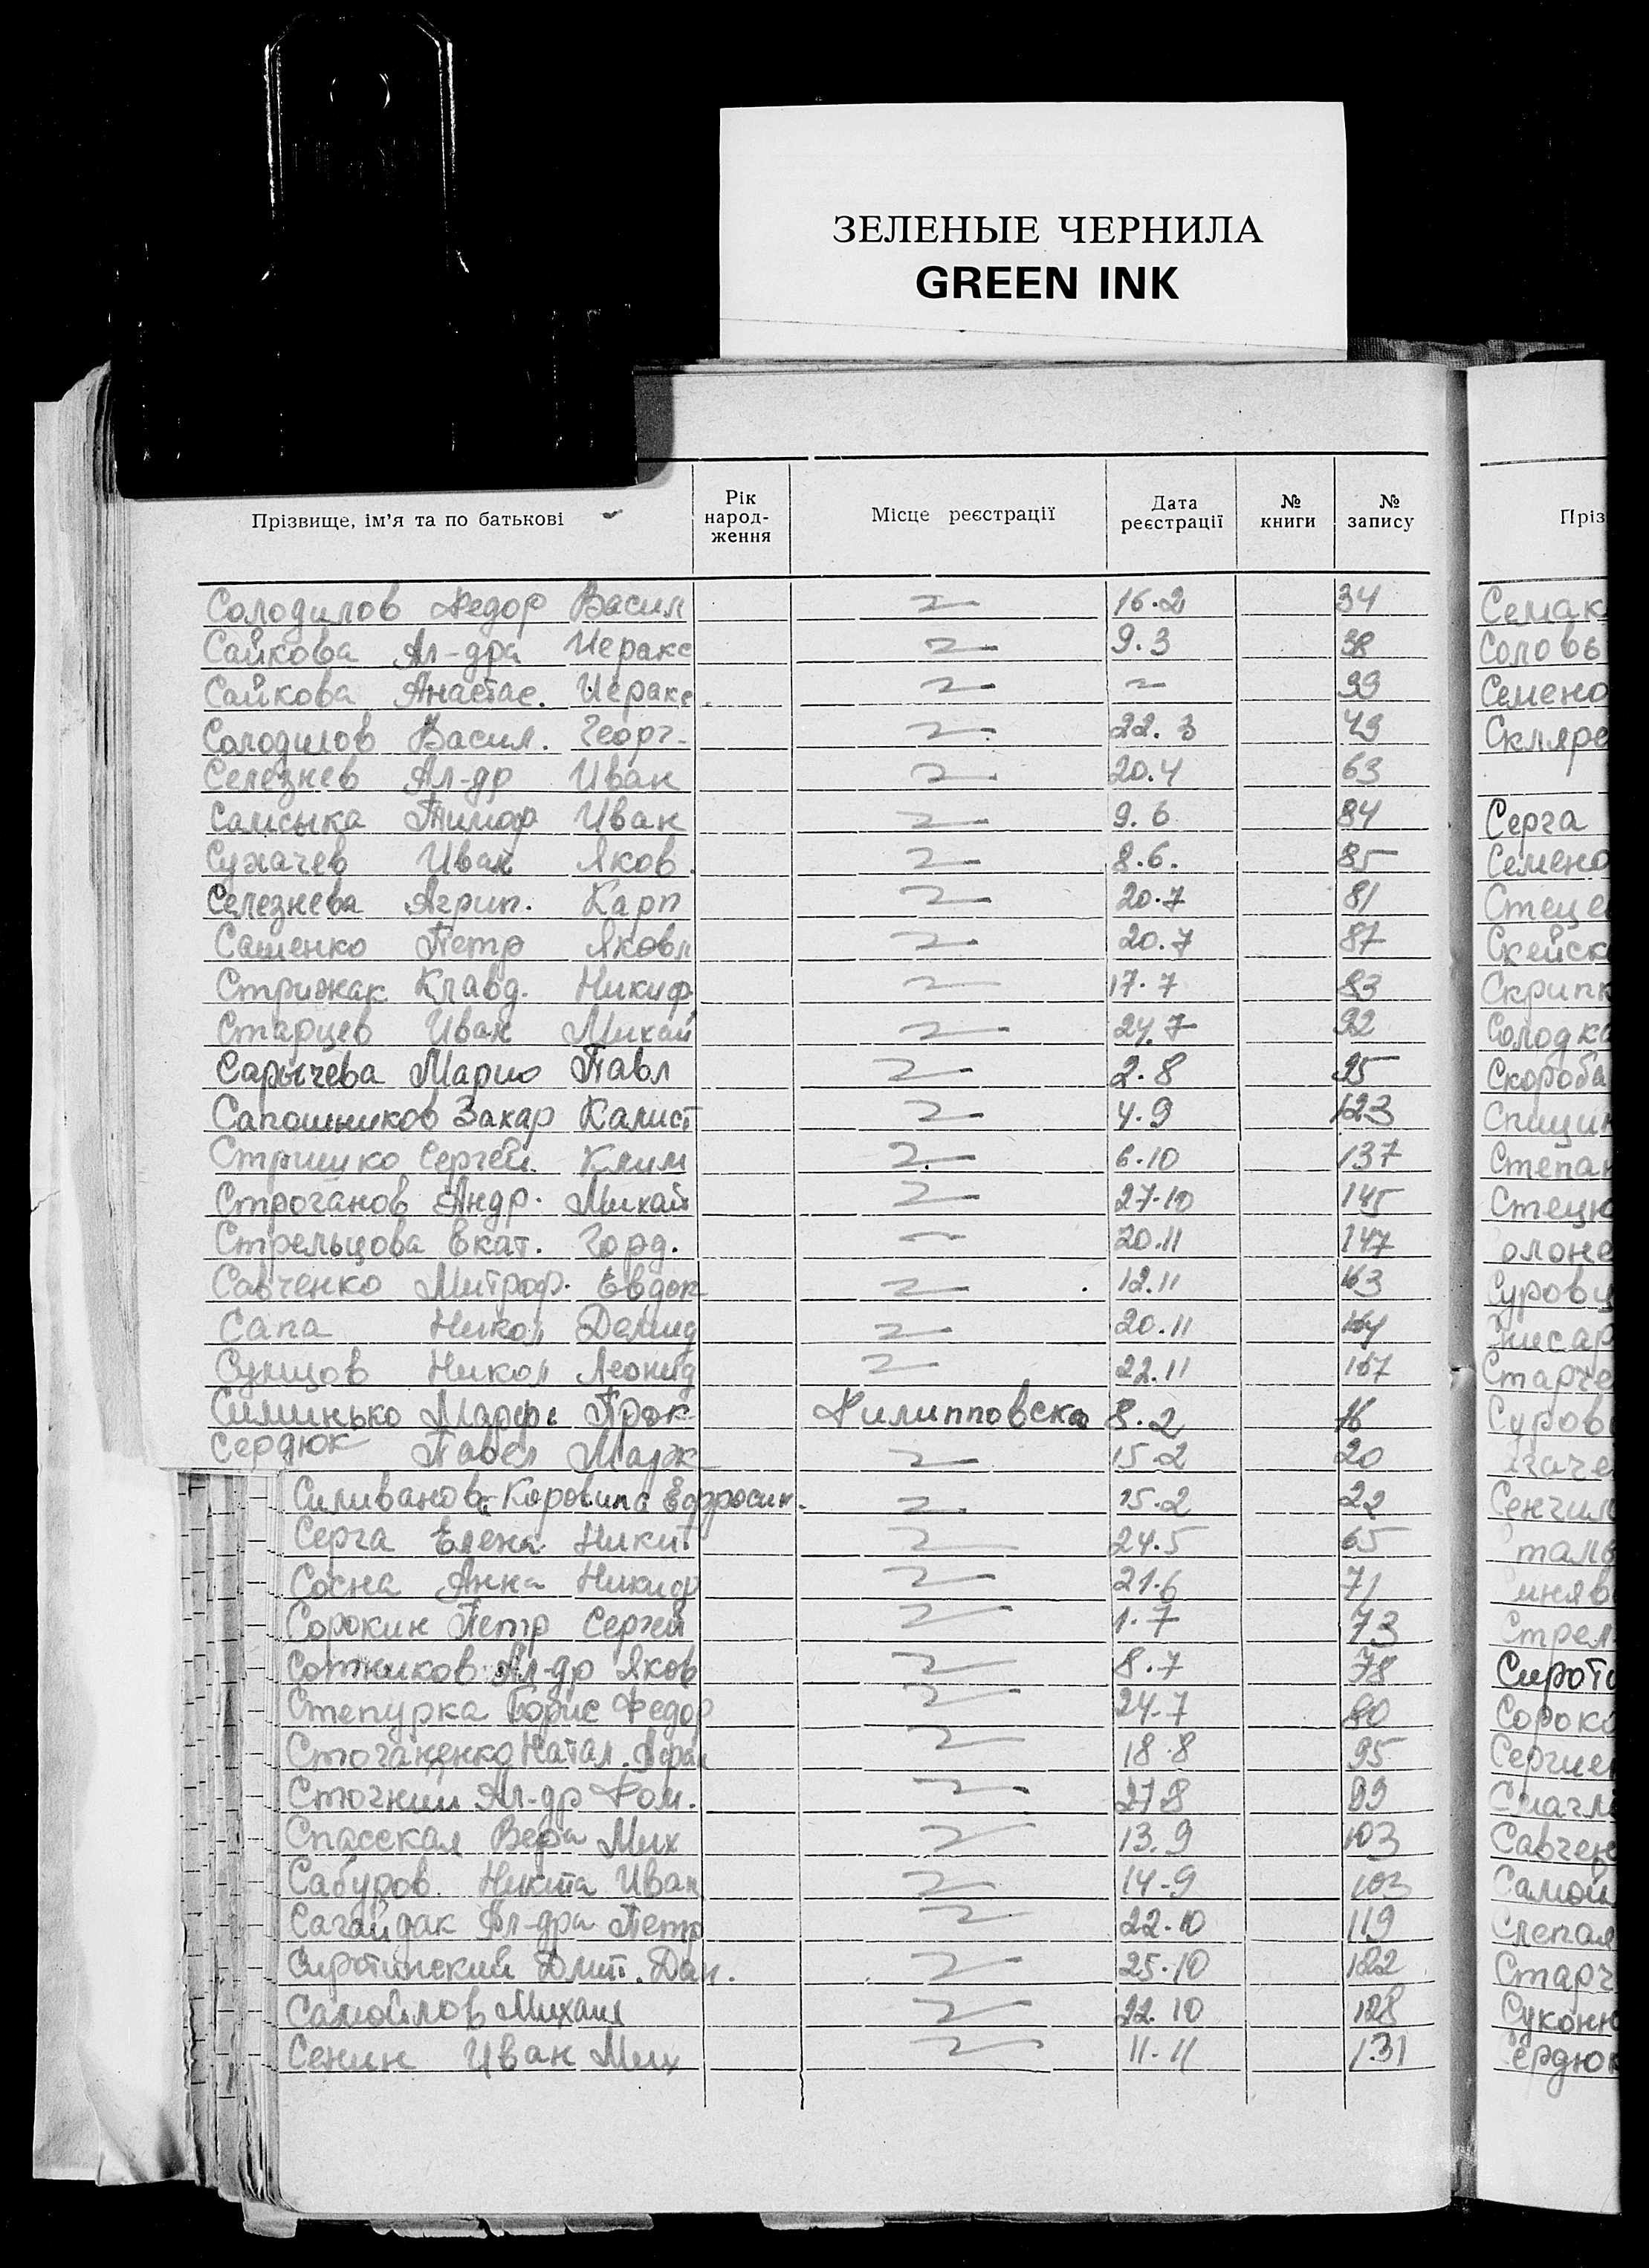 ЗЕЛЕНЫЕ ЧЕРНИЛА
GREEN INK
Прізвище, ім'я та по батькові
Рік народ-ження
Місце реєстрації
Дата реєстрації
№ книги
№ запису
Пріз
Солодилов Федор Васил 16.2 34
Сайкова Ал-дра Иеракс 9.3 38
Сайкова Анастас. Иеракс. 39
Солодилов Васил. Георг. 22.3 49
Селезнев Ал-др Иван 20.4 63
Самсыка Тимоф Иван 9.6 84
Сухачев Иван Яков. 8.6. 85
Селезнева Агрип. Карп 20.7 81
Сашенко Петр Яковл 20.7 87
Стрижак Клавд. Никиф 17.7 83
Старцев Иван Михай 24.7 92
Сарычева Марио Павл 2.8 95
Сапошников Захар Калист 4.9 123
Стришко Сергей Клим 6.10 137
Строганов Андр. Михай 27.10 145
Стрельцова Екат. Горд. 20.11 147
Савченко Митроф. Евдок 12.11 163
Сапа Никол Демид 20.11 164
Сумцов Никол Леонид 22.11 167
Симинько Марф Прок Филипповска 8.2 16
Сердюк Павел Марк 15.2 20
Силиванова Коровина Ефросин. 15.2 22
Серга Елена Никит 24.5 65
Сосна Анна Никиф 21.6 71
Сорокин Петр Сергей 1.7 73
Сотников Ал-др Яков 8.7 78
Степурка Борис Федор 24.7 80
Стоганенко Натал. Афан 18.8 95
Стогний Ал-др Фом. 27.8 99
Спасская Вера Мих 13.9 103
Сабуров Никита Иван 14.9 103
Сагайдак Ал-дра Петр 22.10 119
Сиротинский Дмит. Дан. 25.10 122
Самойлов Михаил 22.10 128
Сенин Иван Мих 11.11 131
Семак
Соловь
Семено
Скляре
Серга
Семено
Стеце
Скейск
Скрипк
Солодк
Скороба
Спицин
Степан
Стецю
олоне
Суровц
Старче
Суров
Сенчил
Стрел
Сирот
Сороко
Сергиен
Савчен
Самой
Слепая
Старч
Суконн
ердюк